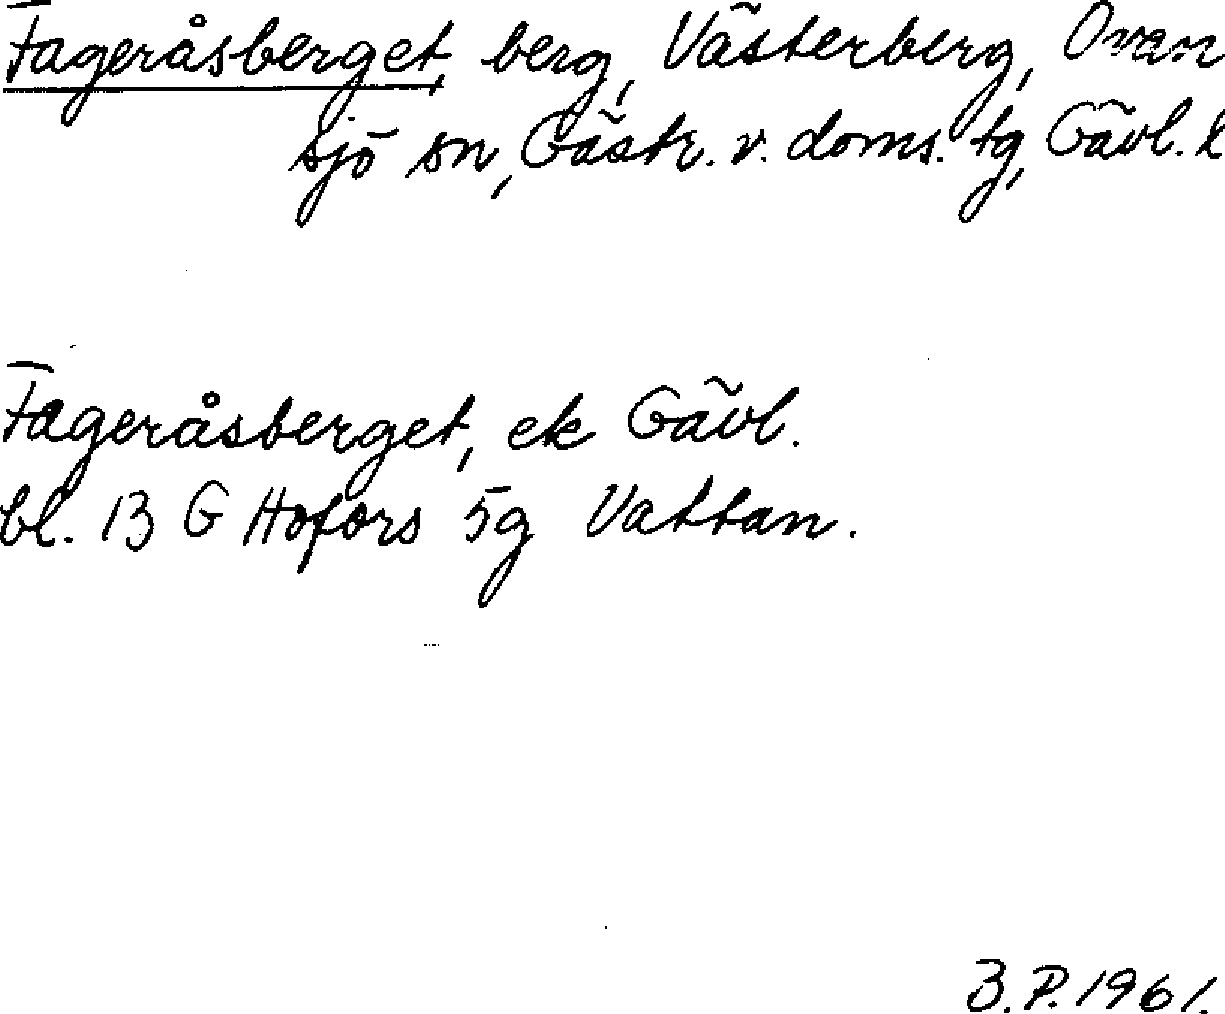 Fageråsberget, berg, Västerberg, Ovan
sjö sn, Gästr. v. doms. tg, Gävl. l
Fageråsberget, ek Gävl.
bl. 13 G Hofors 5g Vattan.
B.P. 1961.